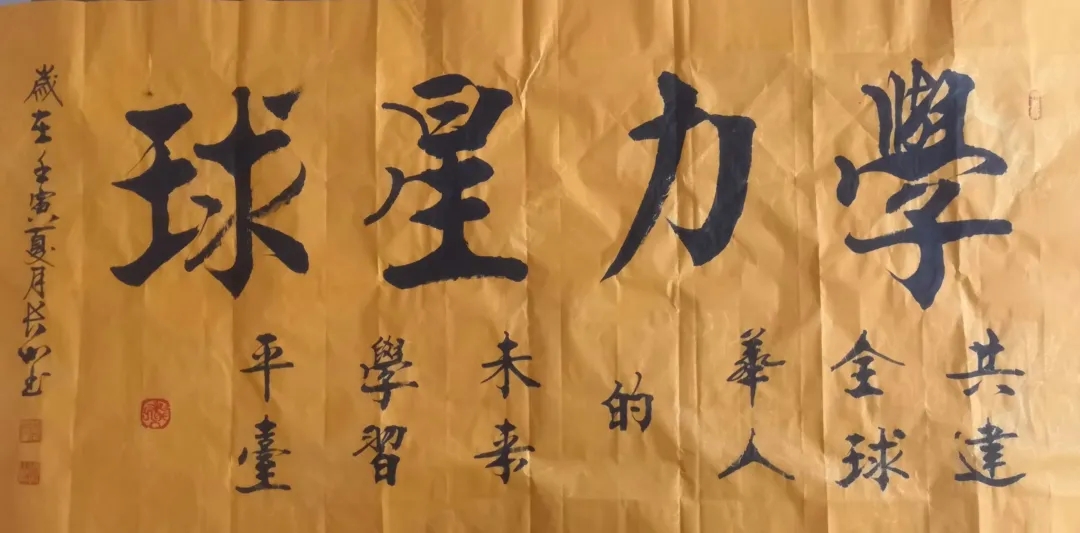 學力星球
共建
全球
華人
的
未来
學習
平臺
歲在壬寅夏月长山书